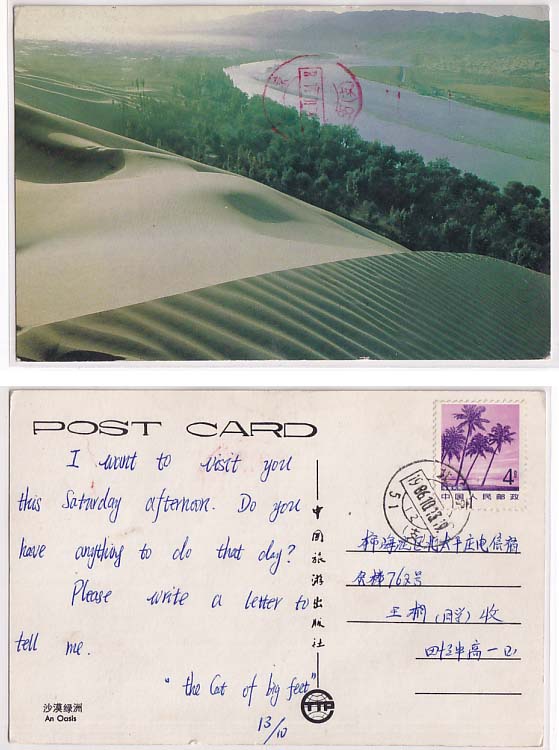 POST CARD
I want to visit you
this Saturday afternoon. Do you
have anything to do that day?
Please write a letter to
tell me.
"the Cat of big feet"
13/10
沙漠绿洲
An Oasis
中国旅游出版社
CTTP
4分
中国人民邮政
1986.10.13.19
北太平庄电信宿
舍楼76号
王桐 (同学) 收
四十三中高一